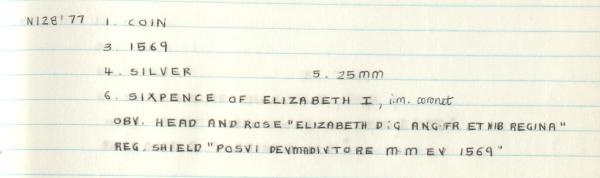 N128'77 1. COIN
3. 1569
4. SILVER 5. 25mm
6. SIXPENCE OF ELIZABETH I, i.m. coronet
OBV. HEAD AND ROSE "ELIZABETH D:G ANG·FR ET HIB REGINA"
REG. SHIELD "POSVI DEVMADIVTORE M M EV 1569"